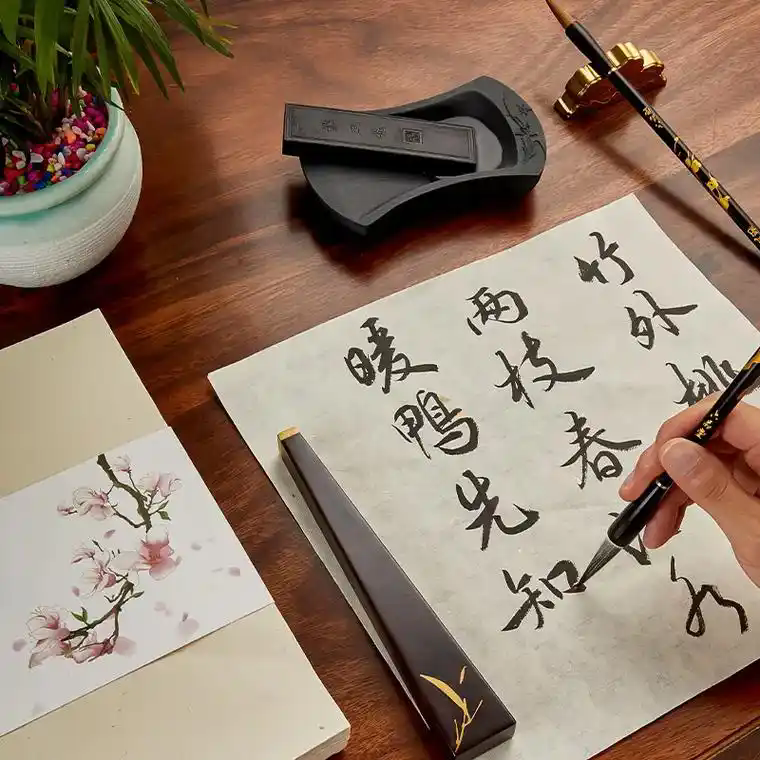 竹外桃
两枝春水
暖鴨先知